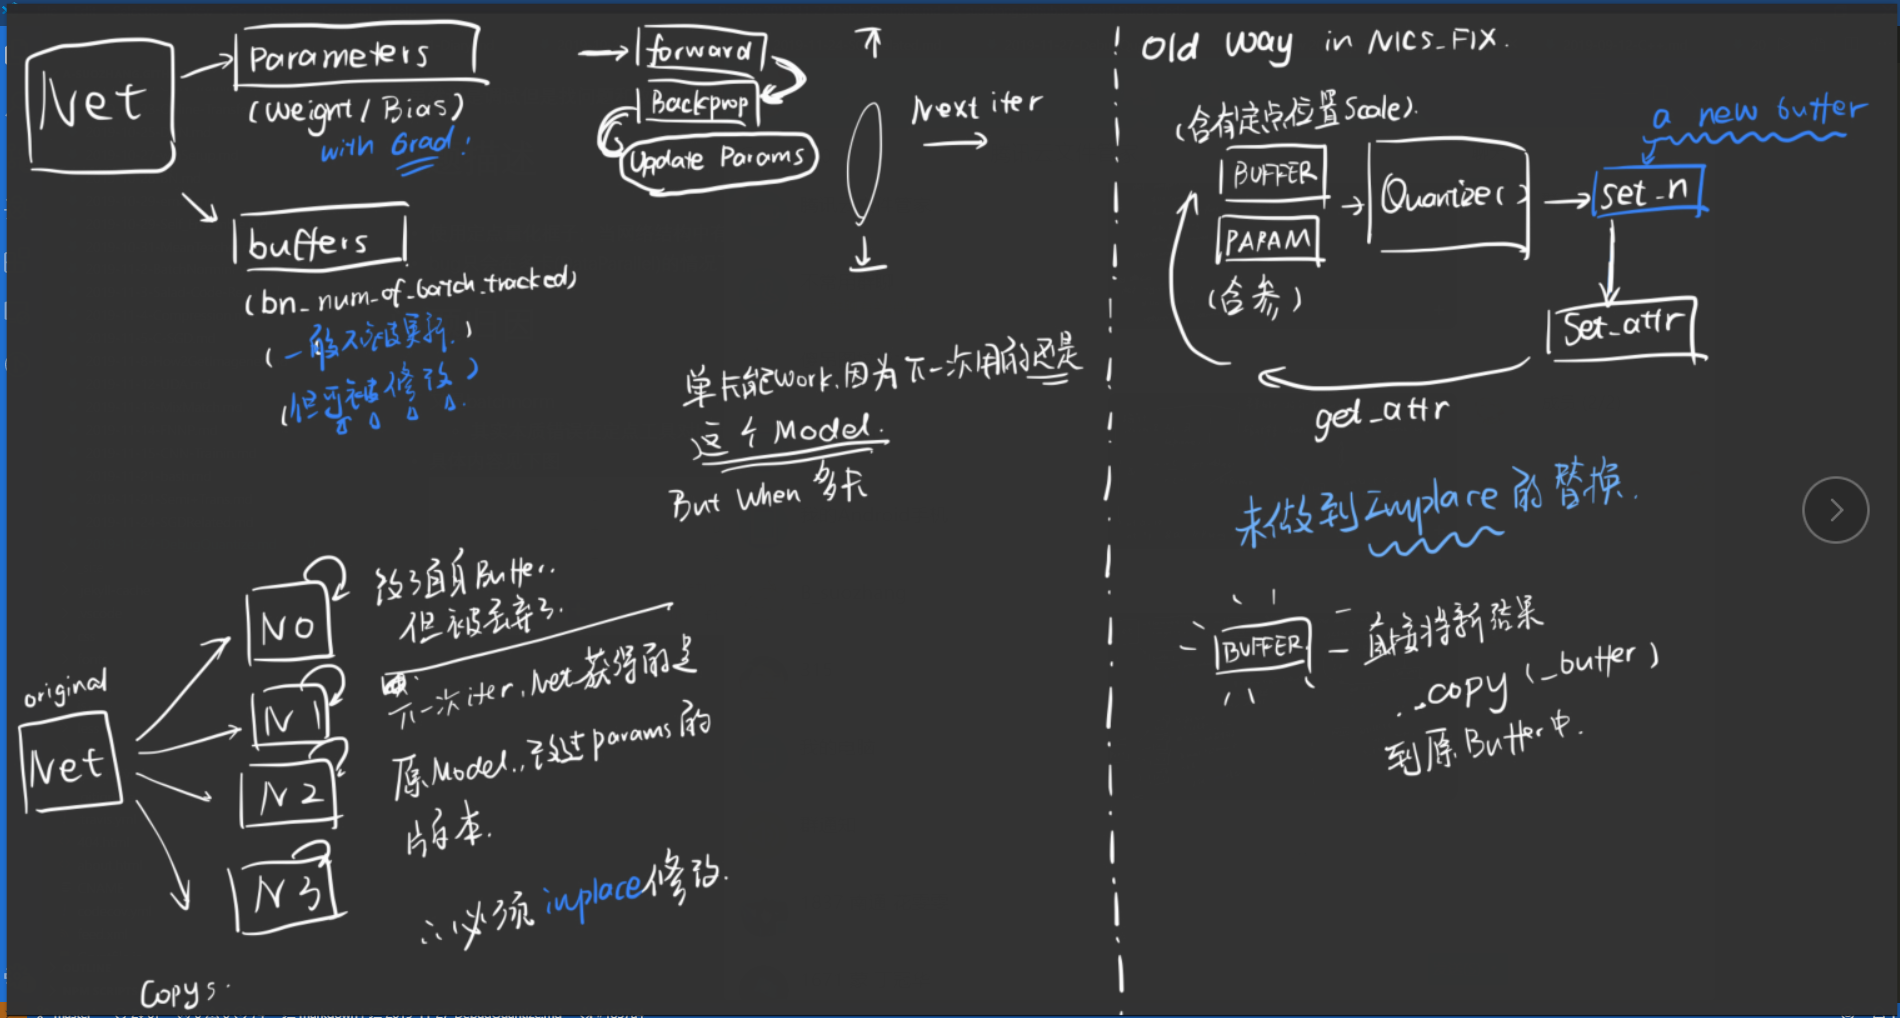 Net
Parameters
(weight / Bias)
with Grad!
buffers
(bn_num_of_batch_tracked)
(一般不被更新.)
(但可被修改)
forward
Backprop
Update Params
Next iter
单卡能work,因为下一次用的还是
这个 Model.
But When 多卡
original
Net
N0
N1
N2
N3
Copys.
改了自身Buffer.
但被丢弃了.
下一次iter, Net获得的是
原Model.,
params的
版本.
∴必须inplace修改.
Old Way in NICS_FIX.
(含有定点位置Scale).
BUFFER
PARAM
(含参)
Quantize()
a new buffer
set_n
Set_attr
get_attr
未做到Inplace的替换.
BUFFER
直接将新结果
..copy(_buffer)
到原Buffer中.